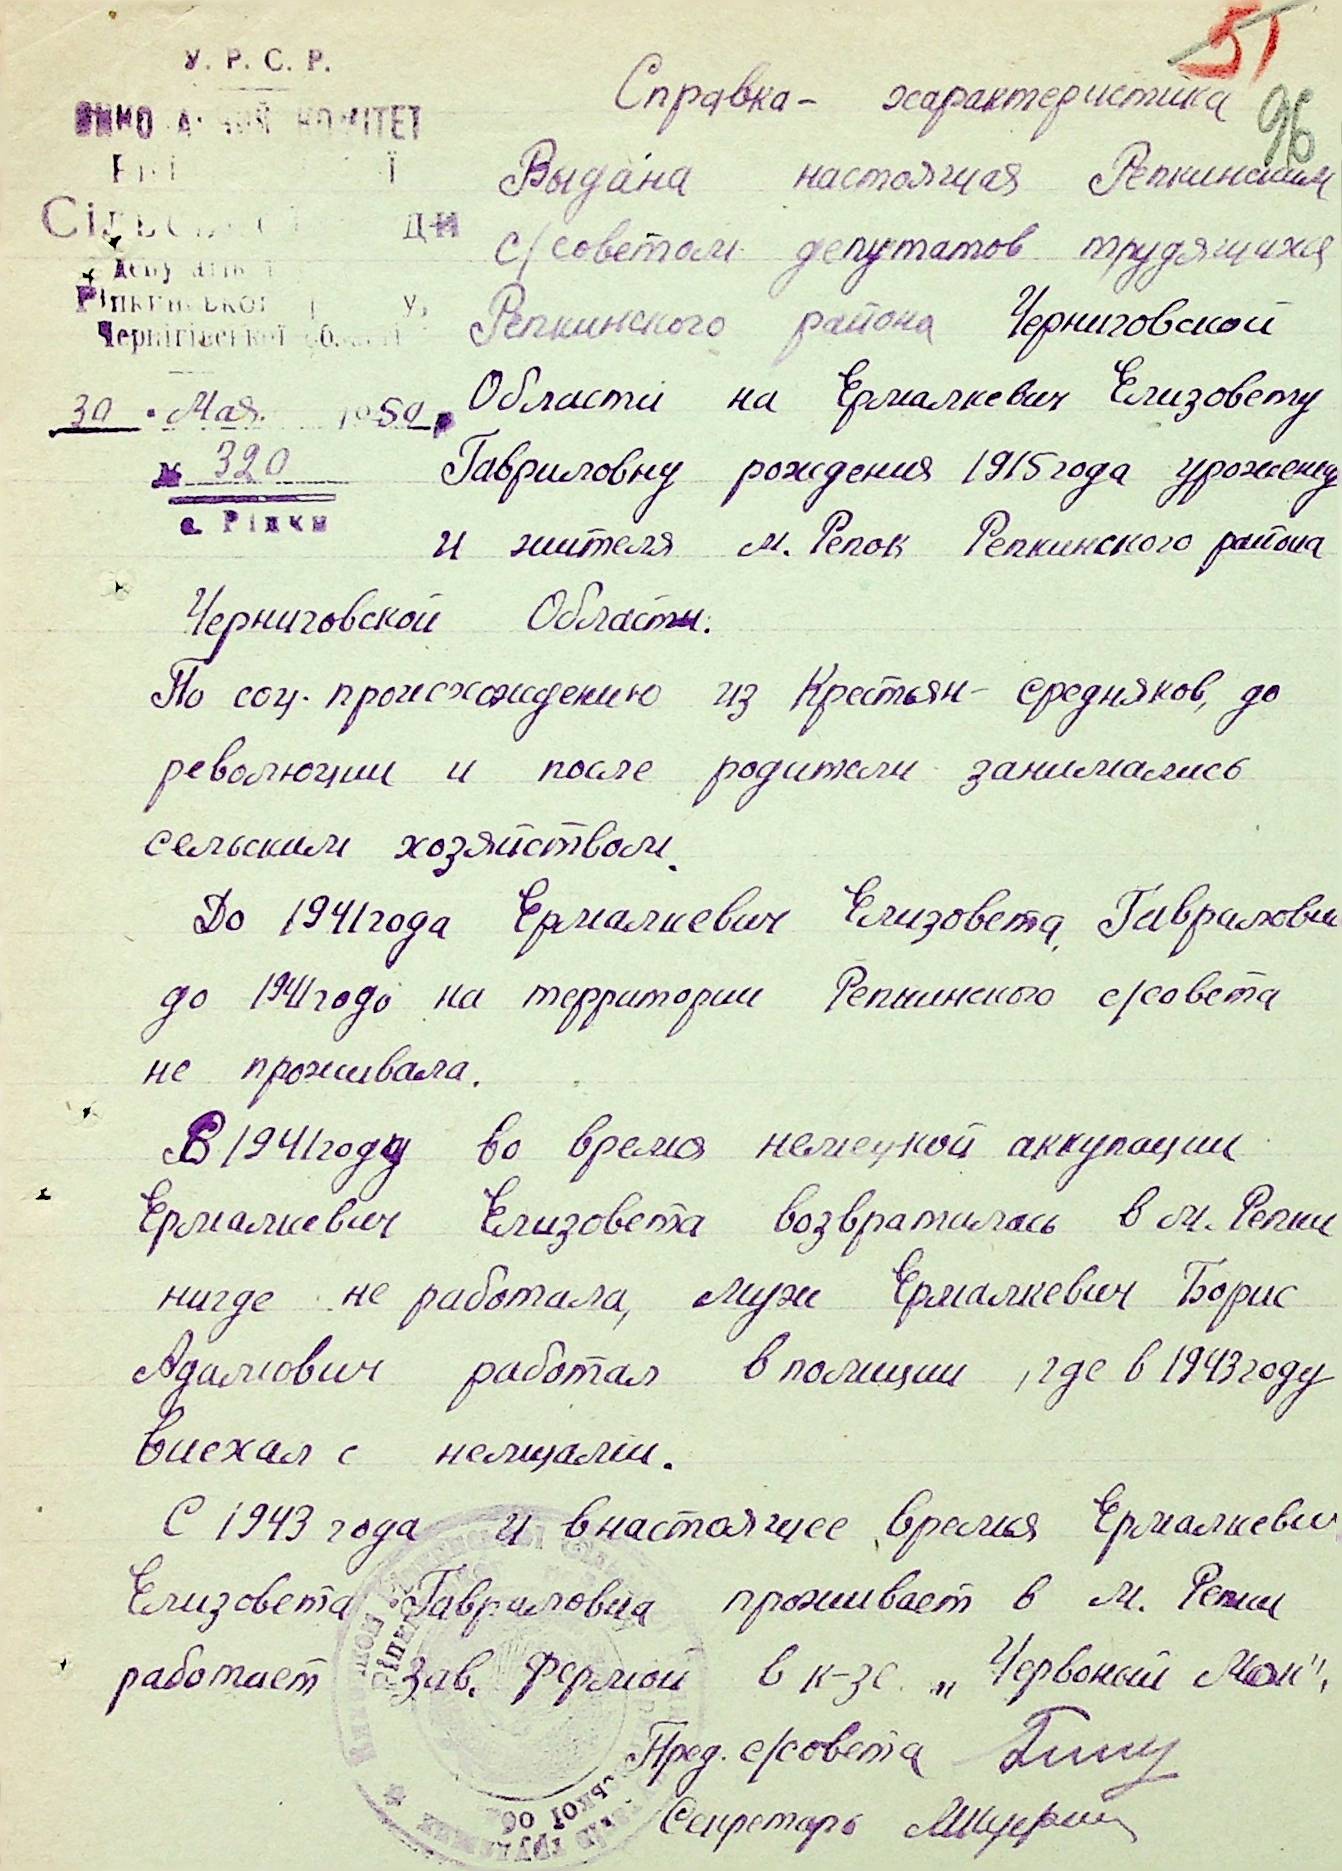 51
96
У. Р. С. Р.
КОМІТЕТ
Чернігівської області
30 Мая 1950 р
№ 320
с. Ріпки
Справка - характеристика
Выдана настоящая Репкинским
с/советом депутатов трудящихся
Репкинского района Черниговской
Области на Ермалкевич Елизовету
Гавриловну рождения 1915 года уроженку
и жителя м. Репок Репкинского района
Черниговской Области.
По соц. происхождению из Крестьян - средняков, до
революции и после родители занимались
сельским хозяйством.
До 1941 года Ермалкевич Елизовета Гавриловна
до 1941 года на территории Репкинского с/совета
не проживала.
В 1941 году во время немецкой аккупации
Ермалкевич Елизовета возвратилась в м. Репки
нигде не работала, муж Ермалкевич Борис
Адамович работал в полиции, где в 1943 году
виехал с немцами.
С 1943 года и в настоящее время Ермалкевич
Елизовета Гавриловна проживает в м. Репки
работает зав. фермой в к-зе „Червоный Маяк".
Пред. с/совета
Секретарь